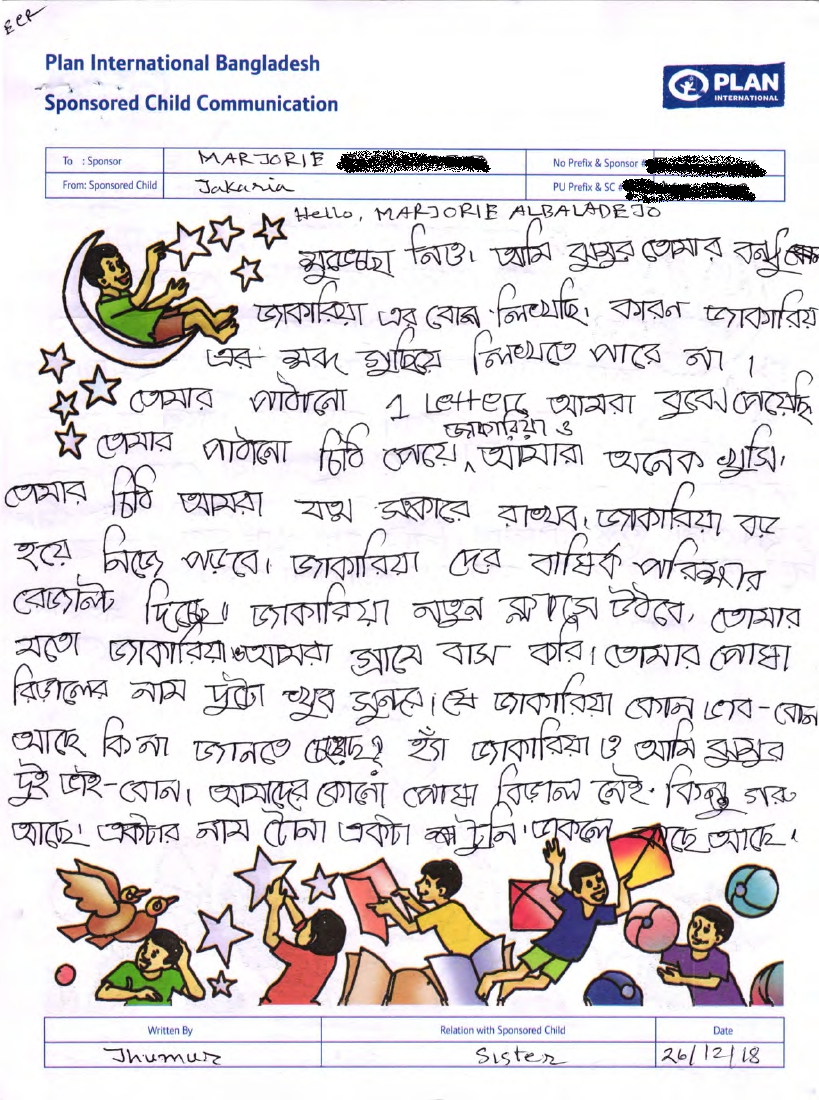 ECR
Plan International Bangladesh
Sponsored Child Communication
PLAN
INTERNATIONAL
To : Sponsor MARJORIE No Prefix & Sponsor #
From: Sponsored Child Jakaria PU Prefix & SC #
Hello, MARJORIE ALBALADEJO
শুভেচ্ছা নিও। আমি ঝুমুর তোমার বন্ধু
জাকারিয়া এর বোন লিখেছি। কারণ জাকারিয়
এর শব্দ গুছিয়ে লিখতে পারে না।
তোমার পাঠানো 1 Letter আমরা পেয়েছি
জাকারিয়া ও
তোমার পাঠানো চিঠি পেয়ে আমারা অনেক খুসি।
তোমার চিঠি আমরা যত্ন সহকারে রাখব। জাকারিয়া বড়
হয়ে নিজে পড়বে। জাকারিয়া দের বার্ষিক পরিক্ষার
রেজাল্ট দিচ্ছে। জাকারিয়া নতুন ক্লাসে উঠবে। তোমার
মতো জাকারিয়া আমরা গ্রামে বাস করি। তোমার পোষা
বিড়ালের নাম দুটো খুব সুন্দর। যে জাকারিয়া কোন ভাই-বোন
আছে কি না জানতে চেয়েছ? হ্যাঁ জাকারিয়া ও আমি ঝুমুর
দুই ভাই-বোন। আমাদের কোনো পোষা বিড়াল নেই। কিন্তু গরু
আছে। একটার নাম টোনা একটা টুনি। আছে।
Written By Relation with Sponsored Child Date
Jhumur Sister 26/12/18